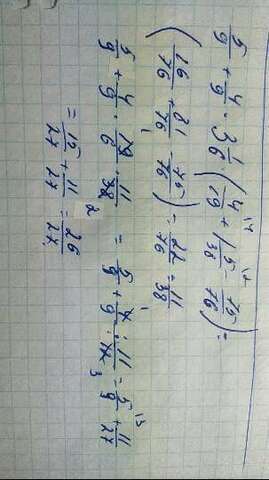 5/9 + 4/9 · 3 1/6 (4/19 + 1 5/38 - 75/76) =
(16/76 + 81/76 - 75/76) = 22/76 = 11/38
5/9 + 4/9 · 19/6 · 11/38 = 5/9 + 4/9 · 11/12 = 5/9 + 11/27
= 15/27 + 11/27 = 26/27